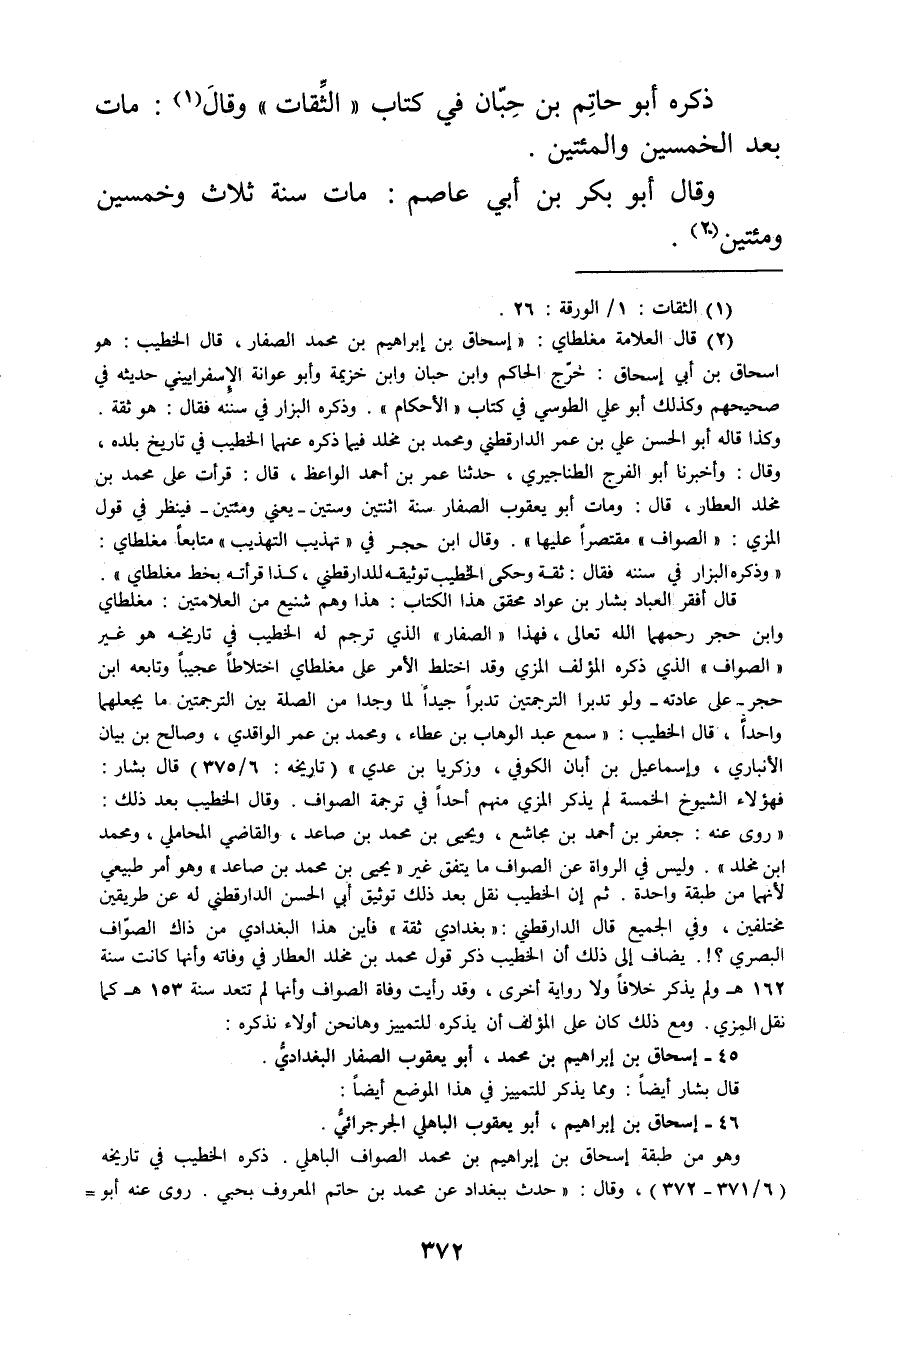 ذكره أبو حاتِم بن حِبّان في كتاب « الثِّقات » وقالَ(١) : مات
بعد الخمسين والمئتين .
وقال أبو بكر بن أبي عاصم : مات سنة ثلاث وخمسين
ومئتين(٢) .
(١) الثقات : ١/ الورقة : ٢٦ .
(٢) قال العلامة مغلطاي : « إسحاق بن إبراهيم بن محمد الصفار ، قال الخطيب : هو
اسحاق بن أبي إسحاق : خرّج الحاكم وابن حبان وابن خزيمة وأبو عوانة الإسفراييني حديثه في
صحيحهم وكذلك أبو علي الطوسي في كتاب « الأحكام » . وذكره البزار في سننه فقال : هو ثقة .
وكذا قاله أبو الحسن علي بن عمر الدارقطني ومحمد بن مخلد فيما ذكره عنهما الخطيب في تاريخ بلده ،
وقال : وأخبرنا أبو الفرج الطناجيري ، حدثنا عمر بن أحمد الواعظ ، قال : قرأت على محمد بن
مخلد العطار ، قال : ومات أبو يعقوب الصفار سنة اثنتين وستين - يعني ومئتين - فينظر في قول
المزي : « الصواف » مقتصراً عليها » . وقال ابن حجر في « تهذيب التهذيب » متابعاً مغلطاي :
« وذكره البزار في سننه فقال : ثقة وحكى الخطيب توثيقه للدارقطني ، كذا قرأته بخط مغلطاي » .
قال أفقر العباد بشار بن عواد محقق هذا الكتاب : هذا وهم شنيع من العلامتين : مغلطاي
وابن حجر رحمهما الله تعالى ، فهذا « الصفار » الذي ترجم له الخطيب في تاريخه هو غير
« الصواف » الذي ذكره المؤلف المزي وقد اختلط الأمر على مغلطاي اختلاطاً عجيباً وتابعه ابن
حجر - على عادته - ولو تدبرا الترجمتين تدبراً جيداً لما وجدا من الصلة بين الترجمتين ما يجعلهما
واحداً ، قال الخطيب : « سمع عبد الوهاب بن عطاء ، ومحمد بن عمر الواقدي ، وصالح بن بيان
الأنباري ، وإسماعيل بن أبان الكوفي ، وزكريا بن عدي » ( تاريخه : ٣٧٥/٦ ) قال بشار :
فهؤلاء الشيوخ الخمسة لم يذكر المزي منهم أحداً في ترجمة الصواف . وقال الخطيب بعد ذلك :
« روى عنه : جعفر بن أحمد بن مجاشع ، ويحيى بن محمد بن صاعد ، والقاضي المحاملي ، ومحمد
ابن مخلد » . وليس في الرواة عن الصواف ما يتفق غير « يحيى بن محمد بن صاعد » وهو أمر طبيعي
لأنهما من طبقة واحدة . ثم إن الخطيب نقل بعد ذلك توثيق أبي الحسن الدارقطني له عن طريقين
مختلفين ، وفي الجميع قال الدارقطني : « بغدادي ثقة » فأين هذا البغدادي من ذاك الصوّاف
البصري ؟! . يضاف إلى ذلك أن الخطيب ذكر قول محمد بن مخلد العطار في وفاته وأنها كانت سنة
١٦٢ هـ ولم يذكر خلافاً ولا رواية أخرى ، وقد رأيت وفاة الصواف وأنها لم تتعد سنة ١٥٣ هـ كما
نقل المِزي . ومع ذلك كان على المؤلف أن يذكره للتمييز وهانحن أولاء نذكره :
٤٥ - إسحاق بن إبراهيم بن محمد ، أبو يعقوب الصفار البغداديُّ .
قال بشار أيضاً : ومما يذكر للتمييز في هذا الموضع أيضاً :
٤٦ - إسحاق بن إبراهيم ، أبو يعقوب الباهلي الجرجرائيُّ .
وهو من طبقة إسحاق بن إبراهيم بن محمد الصواف الباهلي . ذكره الخطيب في تاريخه
( ٣٧١/٦ - ٣٧٢ ) ، وقال : « حدث ببغداد عن محمد بن حاتم المعروف بحبي . روى عنه أبو =
٣٧٢